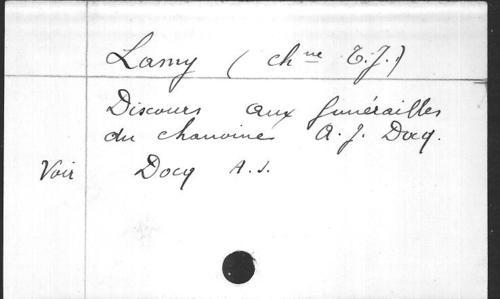 Lamy (chne T.J.)
Discours aux funérailles
du chanoine A.J. Docq.
Voir Docq A.J.